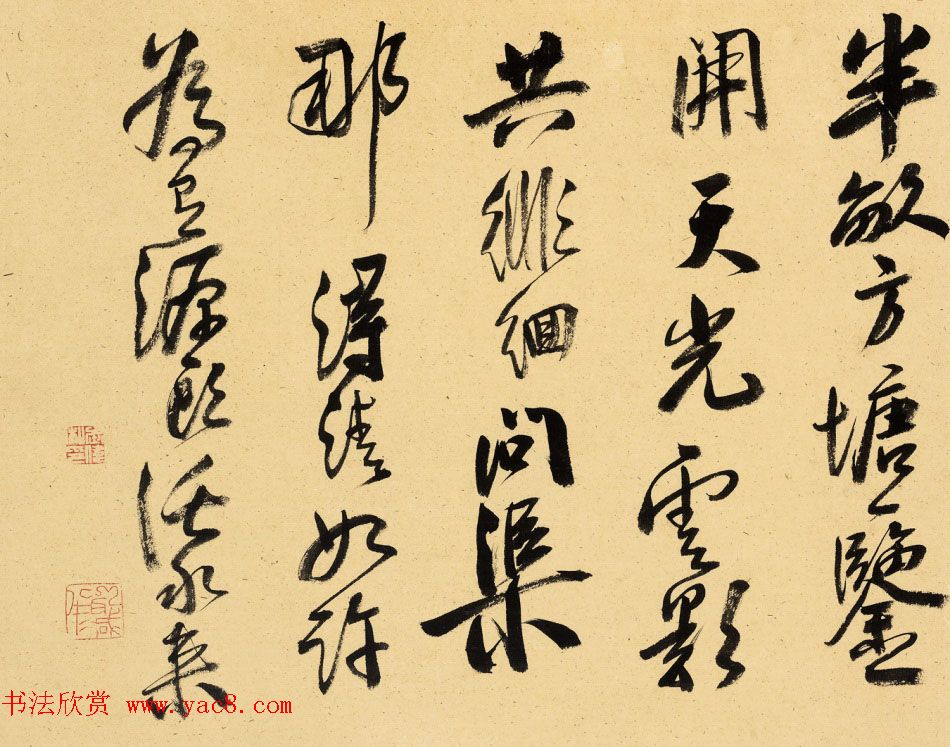 半畝方塘一鑒
開天光雲影
共徘徊問渠
那得清如許
為有源頭活水來
书法欣赏 www.yac8.com